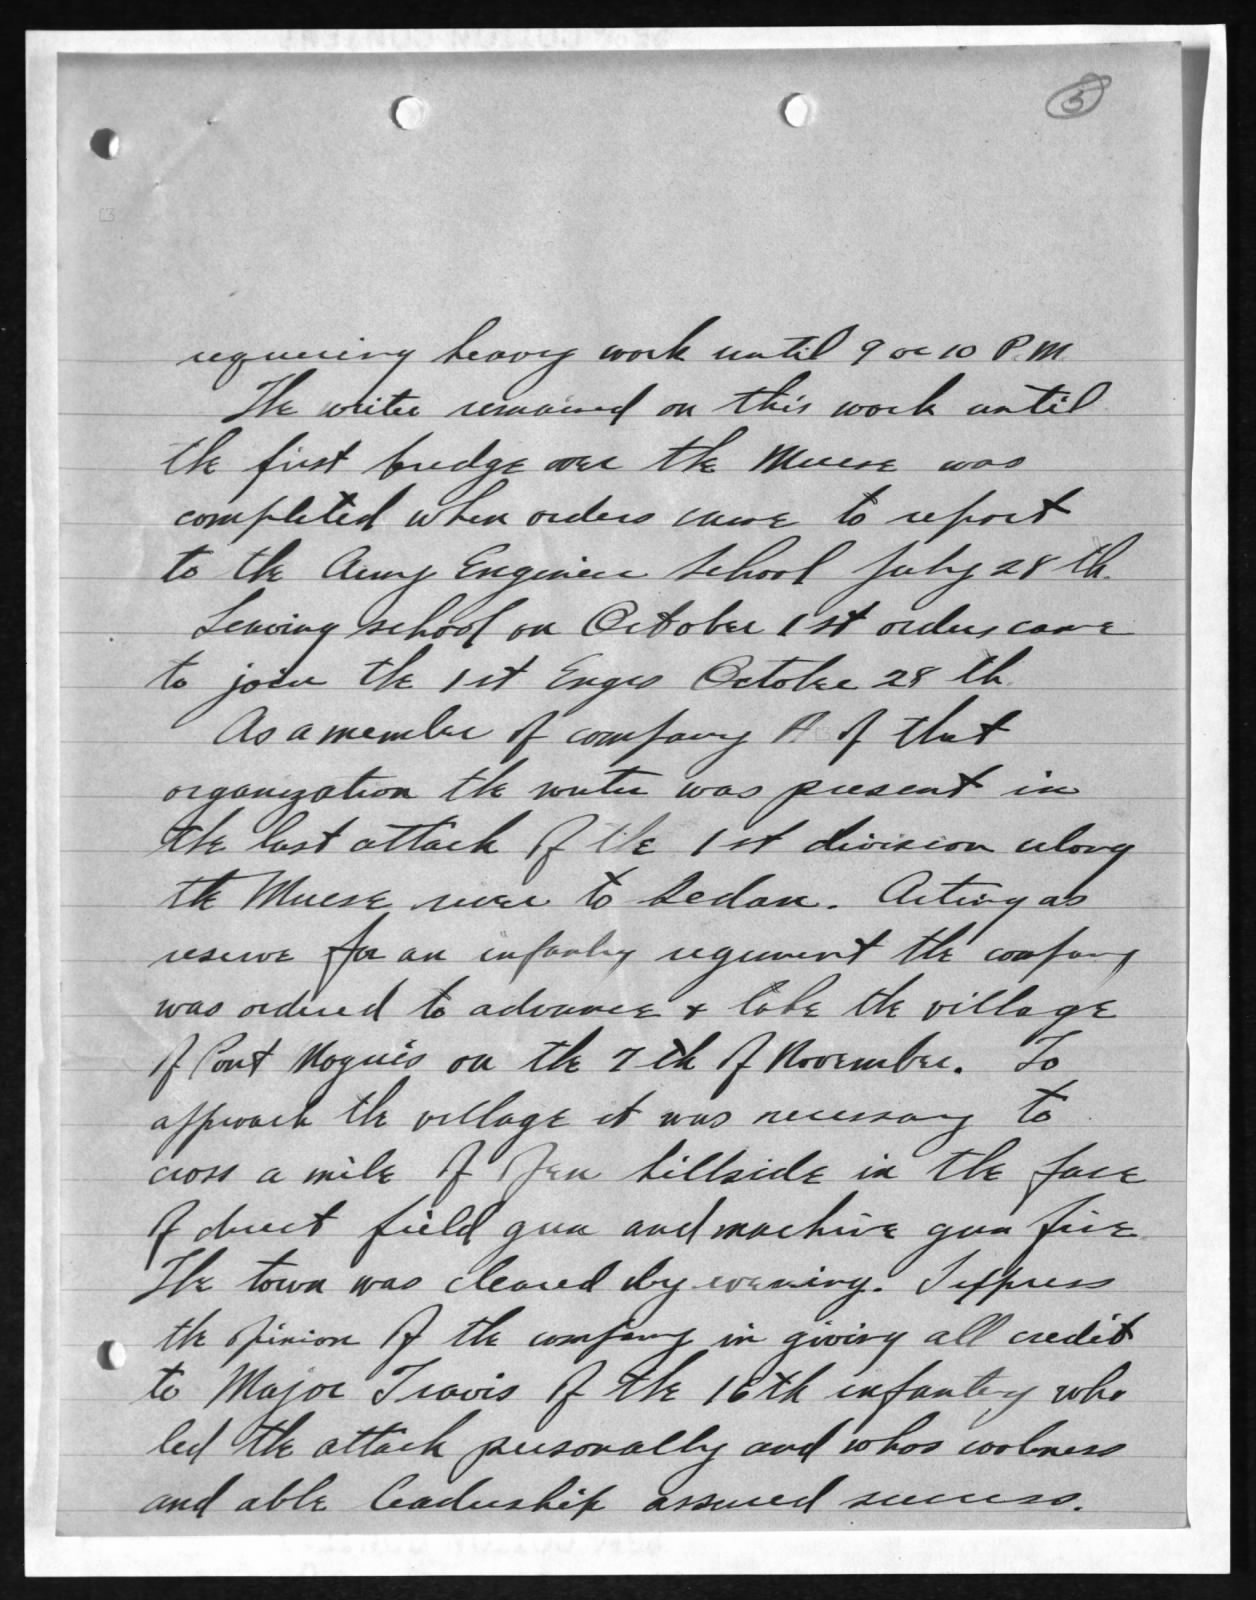 3
requireing heavy work until 9 or 10 P.M.
The writer remained on this work until
the first bridge over the Muese was
completed when orders came to report
to the Army Engineer School July 28th.
Leaving school on October 1st orders came
to join the 1st Engrs October 28th
As a member of company A of that
organization the writer was present in
the last attack of the 1st division along
the Muese river to Sedan. Acting as
reserve for an infantry regiment the company
was ordered to advance + take the village
of Pont Moguis on the 7th of November. To
approach the village it was necessary to
cross a mile of open hillside in the face
of direct field gun and machine gun fire
The town was cleared by evening. I express
the opinion of the company in giving all credit
to Major Travis of the 16th infantry who
led the attack personally and whos coolness
and able leadership assured success.